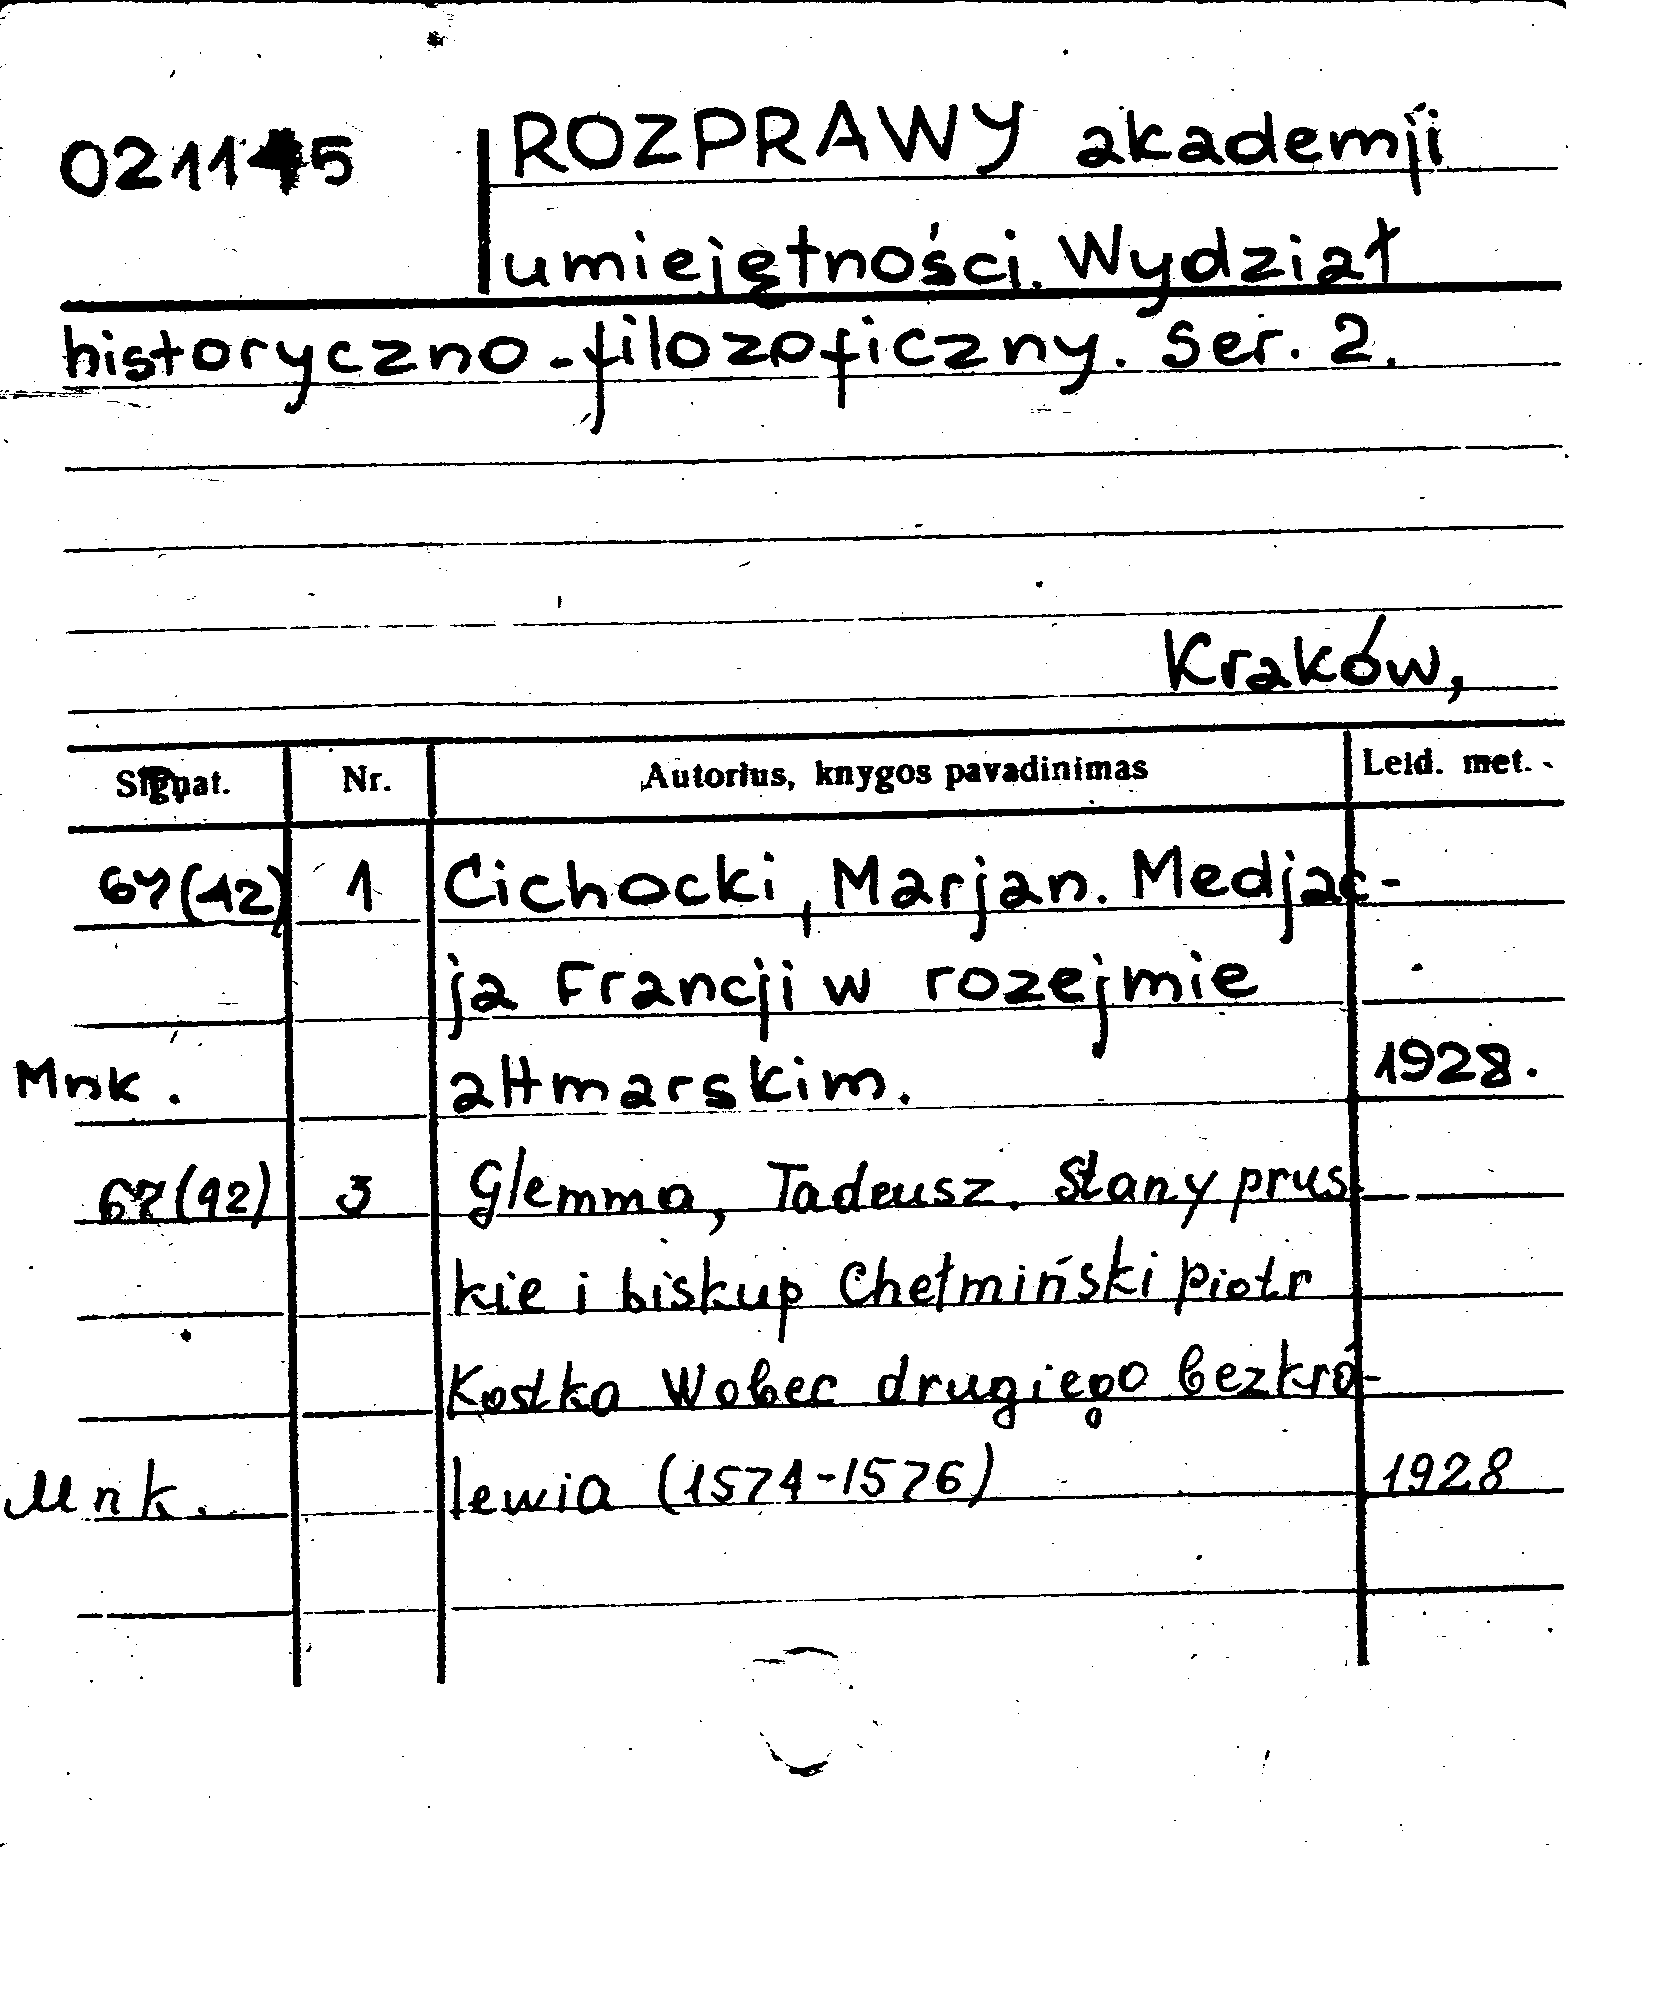 021145 ROZPRAWY akademji
umiejętności. Wydział
historyczno-filozoficzny. Ser. 2.
Kraków,
Signat. Nr. Autorius, knygos pavadinimas Leid. met.
67(42) 1 Cichocki, Marjan. Medjac-
ja Francji w rozejmie
Mnk. altmarskim. 1928.
67(42) 3 Glemma, Tadeusz. Stany prus-
kie i biskup Chełmiński Piotr
Kostka Wobec drugiego bezkró-
Mnk. lewia (1574-1576) 1928